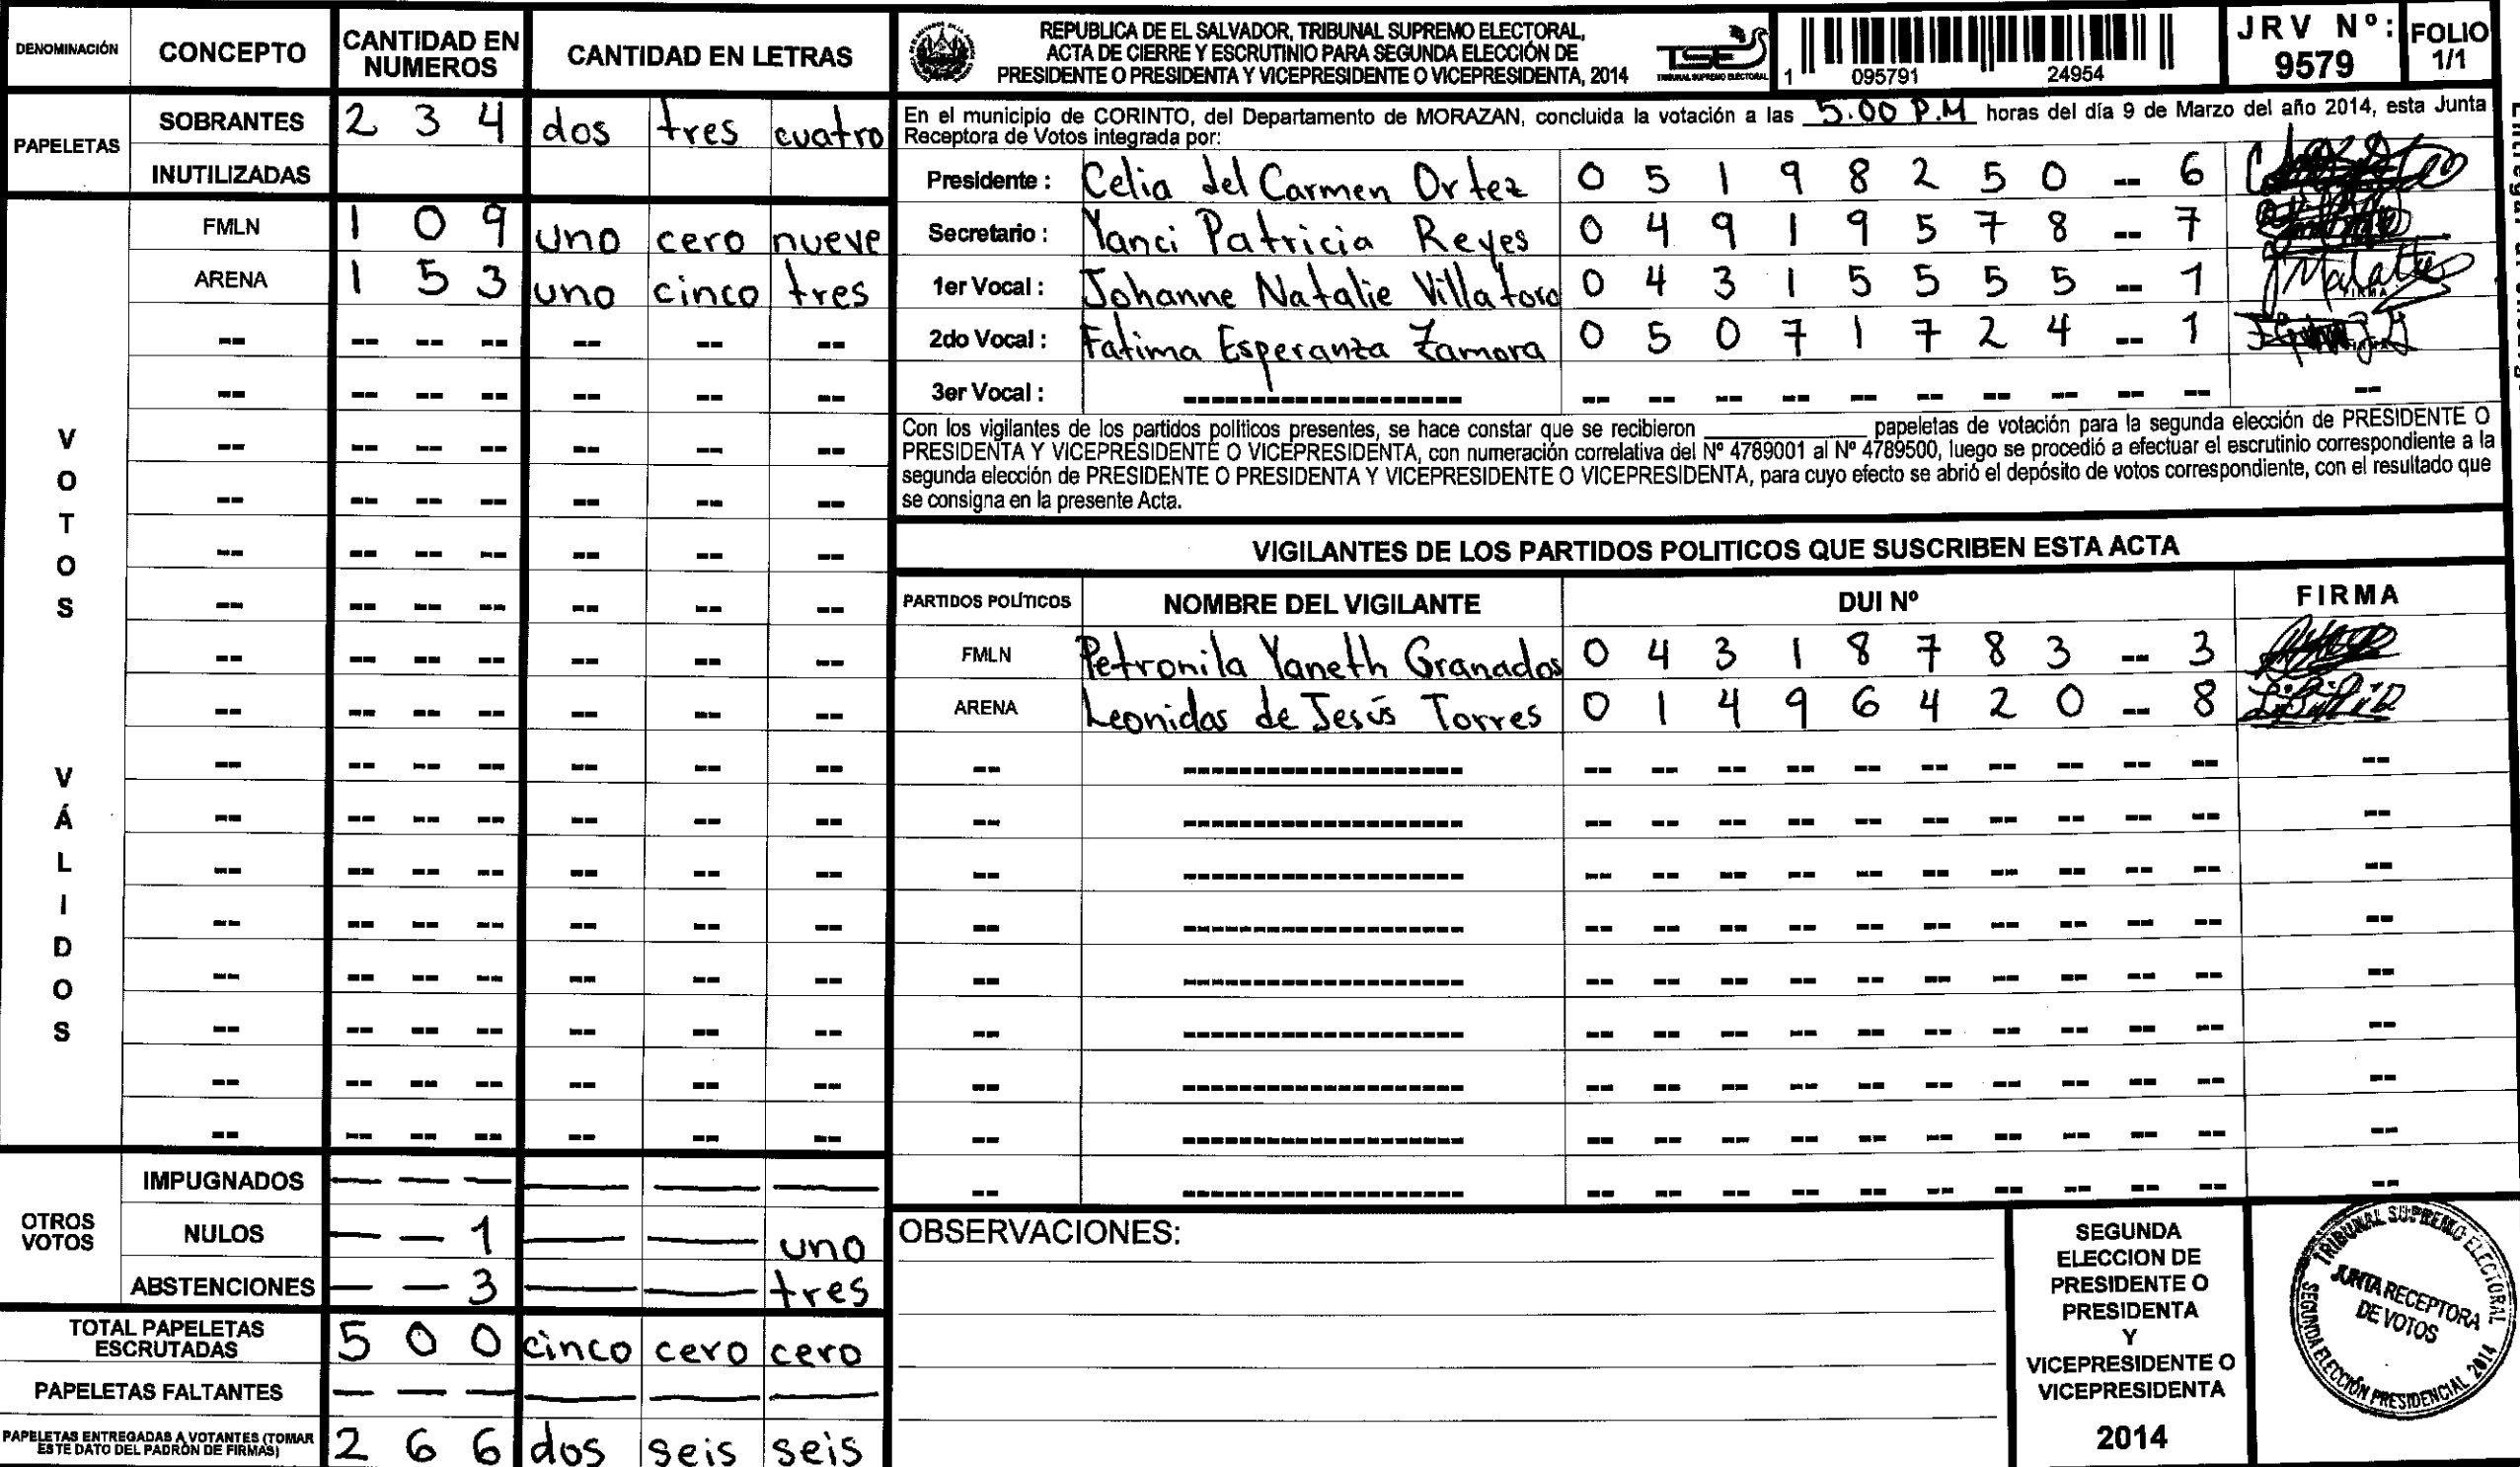 DENOMINACIÓN CONCEPTO CANTIDAD EN NUMEROS CANTIDAD EN LETRAS
PAPELETAS
SOBRANTES 2 3 4 dos tres cuatro
INUTILIZADAS
VOTOS VÁLIDOS
FMLN 1 0 9 uno cero nueve
ARENA 1 5 3 uno cinco tres
OTROS VOTOS
IMPUGNADOS — — — — — —
NULOS — — 1 — — uno
ABSTENCIONES — — 3 — — tres
TOTAL PAPELETAS ESCRUTADAS 5 0 0 cinco cero cero
PAPELETAS FALTANTES — — — — — —
PAPELETAS ENTREGADAS A VOTANTES (TOMAR ESTE DATO DEL PADRÓN DE FIRMAS) 2 6 6 dos seis seis
REPUBLICA DE EL SALVADOR, TRIBUNAL SUPREMO ELECTORAL,
ACTA DE CIERRE Y ESCRUTINIO PARA SEGUNDA ELECCIÓN DE
PRESIDENTE O PRESIDENTA Y VICEPRESIDENTE O VICEPRESIDENTA, 2014
TSE
TRIBUNAL SUPREMO ELECTORAL
1 095791 24954
JRV Nº: 9579
FOLIO 1/1
En el municipio de CORINTO, del Departamento de MORAZAN, concluida la votación a las 5.00 P.M horas del día 9 de Marzo del año 2014, esta Junta
Receptora de Votos integrada por:
Presidente : Celia del Carmen Ortez 0 5 1 9 8 2 5 0 -- 6
Secretario : Yanci Patricia Reyes 0 4 9 1 9 5 7 8 -- 7
1er Vocal : Johanne Natalie Villatoro 0 4 3 1 5 5 5 5 -- 1
2do Vocal : Fatima Esperanza Zamora 0 5 0 7 1 7 2 4 -- 1
3er Vocal :
Con los vigilantes de los partidos políticos presentes, se hace constar que se recibieron ____ papeletas de votación para la segunda elección de PRESIDENTE O
PRESIDENTA Y VICEPRESIDENTE O VICEPRESIDENTA, con numeración correlativa del Nº 4789001 al Nº 4789500, luego se procedió a efectuar el escrutinio correspondiente a la
segunda elección de PRESIDENTE O PRESIDENTA Y VICEPRESIDENTE O VICEPRESIDENTA, para cuyo efecto se abrió el depósito de votos correspondiente, con el resultado que
se consigna en la presente Acta.
VIGILANTES DE LOS PARTIDOS POLITICOS QUE SUSCRIBEN ESTA ACTA
PARTIDOS POLÍTICOS NOMBRE DEL VIGILANTE DUI Nº FIRMA
FMLN Petronila Yaneth Granados 0 4 3 1 8 7 8 3 -- 3
ARENA Leonidas de Jesús Torres 0 1 4 9 6 4 2 0 -- 8
OBSERVACIONES:
SEGUNDA
ELECCION DE
PRESIDENTE O
PRESIDENTA
Y
VICEPRESIDENTE O
VICEPRESIDENTA
2014
TRIBUNAL SUPREMO ELECTORAL
JUNTA RECEPTORA
DE VOTOS
SEGUNDA ELECCIÓN PRESIDENCIAL 2014